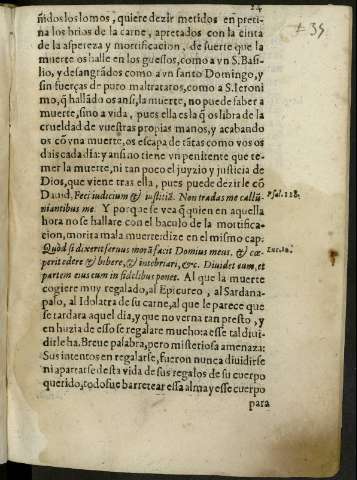 14
ñidos los lomos, quiere dezir metidos en preti-
na los brios de la carne, apretados con la cinta
de la aspereza y mortificacion, de suerte que la
muerte os halle en los guessos, como a vn S. Basi-
lio, y desangrados como a vn santo Domingo, y
sin fuerças de puro maltratatos, como a S. Ieroni
mo, q̃ hallãdo os ansi, la muerte, no puede saber a
muerte, sino a vida, pues ella es la q̃ os libra de la
crueldad de vuestras propias manos, y acabando
os cõ vna muerte, os escapa de tãtas como vos os
dais cada dia; y ansi no tiene vn penitente que te-
mer la muerte, ni tan poco el juyzio y justicia de
Dios, que viene tras ella, pues puede dezirle cõ
Dauid. Feci iudicium & iustitiã. Non tradas me callũ-
niantibus me. Y porque se vea q̃ quien en aquella
hora no se hallare con el baculo de la mortifica-
cion, morira mala muerte: dize en el mismo cap.
Quòd si dixerit seruus morã facit Domius meus, & cœ-
perit edere & bibere, & inebriari, &c. Diuidet eum, et
partem eius cum infidelibus ponet. Al que la muerte
cogiere muy regalado, al Epicureo, al Sardana-
palo, al Idolatra de su carne, al que le parece que
se tardara aquel dia, y que no verna tan presto, y
en huzia de esso se regalare mucho: a esse tal diui-
dirle ha. Breue palabra, pero misteriosa amenaza:
Sus intentos en regalarse, fueron nunca diuidirse
ni apartarse desta vida de sus regalos de su cuerpo
querido, todo fue barretear essa alma y esse cuerpo
para
Psal. 118.
Luc. 12.
35